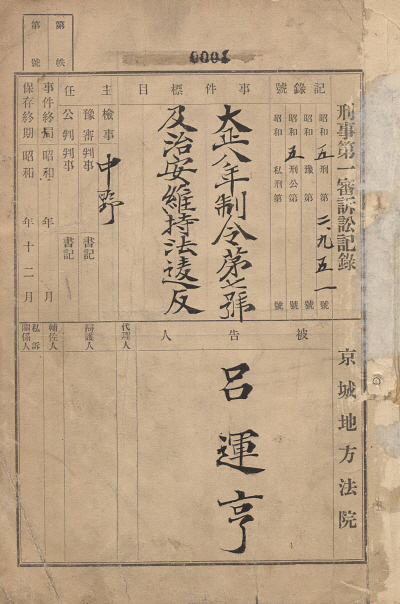 0001
第 帙
第 號
刑事第一審訴訟記錄
京城地方法院
記錄號
昭和五刑第二、九五一號
昭和 豫第 號
昭和五刑公第 號
昭和 私刑第 號
事件標目
大正八年制令第七號
及治安維持法違反
主任
檢事 中野
豫審判事 書記
公判判事 書記
事件終局 昭和 年 月
保存終期 昭和 年十二月
被告人
呂運亨
代理人
辯護人
輔佐人
私訴
關係人